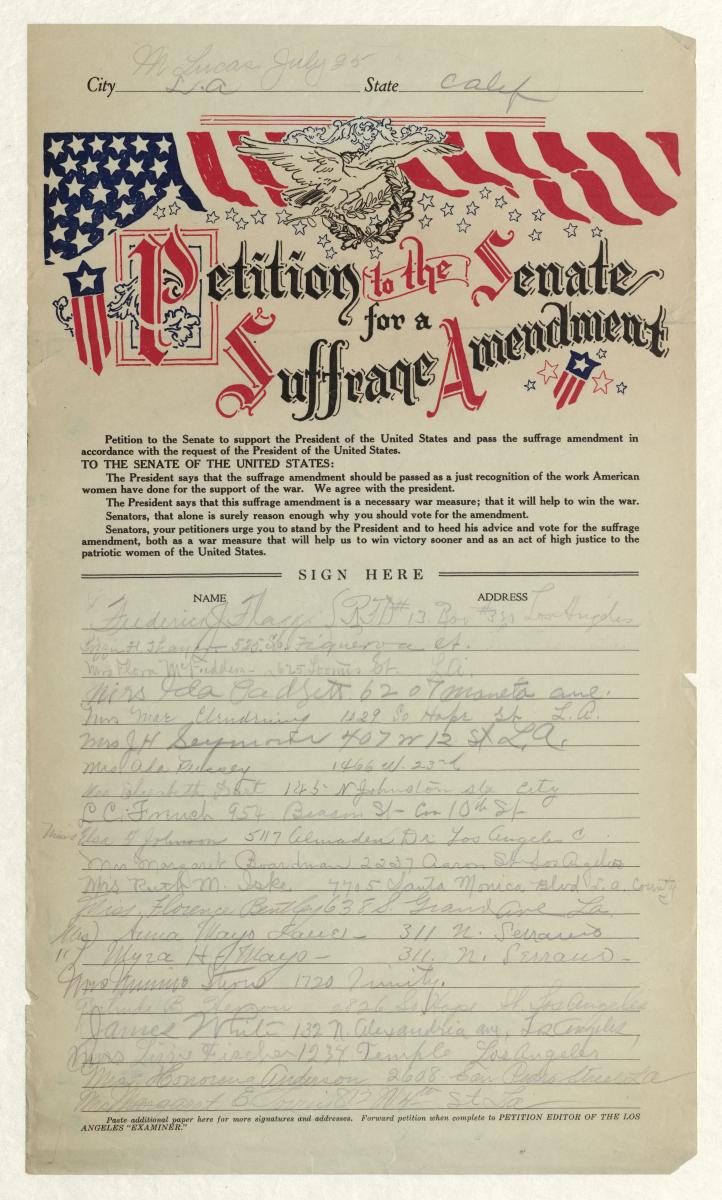 M Lucas July 25
City L.a State Calif
Petition to the Senate
for a
Suffrage Amendment
Petition to the Senate to support the President of the United States and pass the suffrage amendment in
accordance with the request of the President of the United States.
TO THE SENATE OF THE UNITED STATES:
The President says that the suffrage amendment should be passed as a just recognition of the work American
women have done for the support of the war. We agree with the president.
The President says that this suffrage amendment is a necessary war measure; that it will help to win the war.
Senators, that alone is surely reason enough why you should vote for the amendment.
Senators, your petitioners urge you to stand by the President and to heed his advice and vote for the suffrage
amendment, both as a war measure that will help us to win victory sooner and as an act of high justice to the
patriotic women of the United States.
SIGN HERE
NAME ADDRESS
Frederick J Flagg RFD #13 Box Los Angeles
525 So. Figueroa St.
Mrs Flora McFadden 625 Loomis St. L.A.
Mrs Ida Padgett 6207 Moneta ave.
Mrs Mae 1029 So Hope St L.A.
Mrs J H Seymour 407 W 12 St L.A.
Mrs Ada 1466 W. 23rd
Elizabeth 145 N Johnston City
L C. French 954 Beacon St - Cor 10th St
Johnson 5117 Almaden Dr Los Angeles C
Mrs Margaret Boardman 2237 Aaron St Los Angeles
Mrs Ruth M. Iske, 7705 Santa Monica Blvd L.a. County
Miss Florence Bentley 638 S Grand Ave La.
Mrs) Anna Mayo 311 N. Serrano
" Myra H. Mayo - 311. N. Serrano -
Mrs 1720 Trinity.
2826 So Hope St Los Angeles
James White 132 N. Alexandria av, Los Angeles
Mrs Lizzie Fischer 1234 Temple Los Angeles
Miss Anderson 2608 San Pedro Street La
Margaret E
Paste additional paper here for more signatures and addresses. Forward petition when complete to PETITION EDITOR OF THE LOS
ANGELES "EXAMINER."